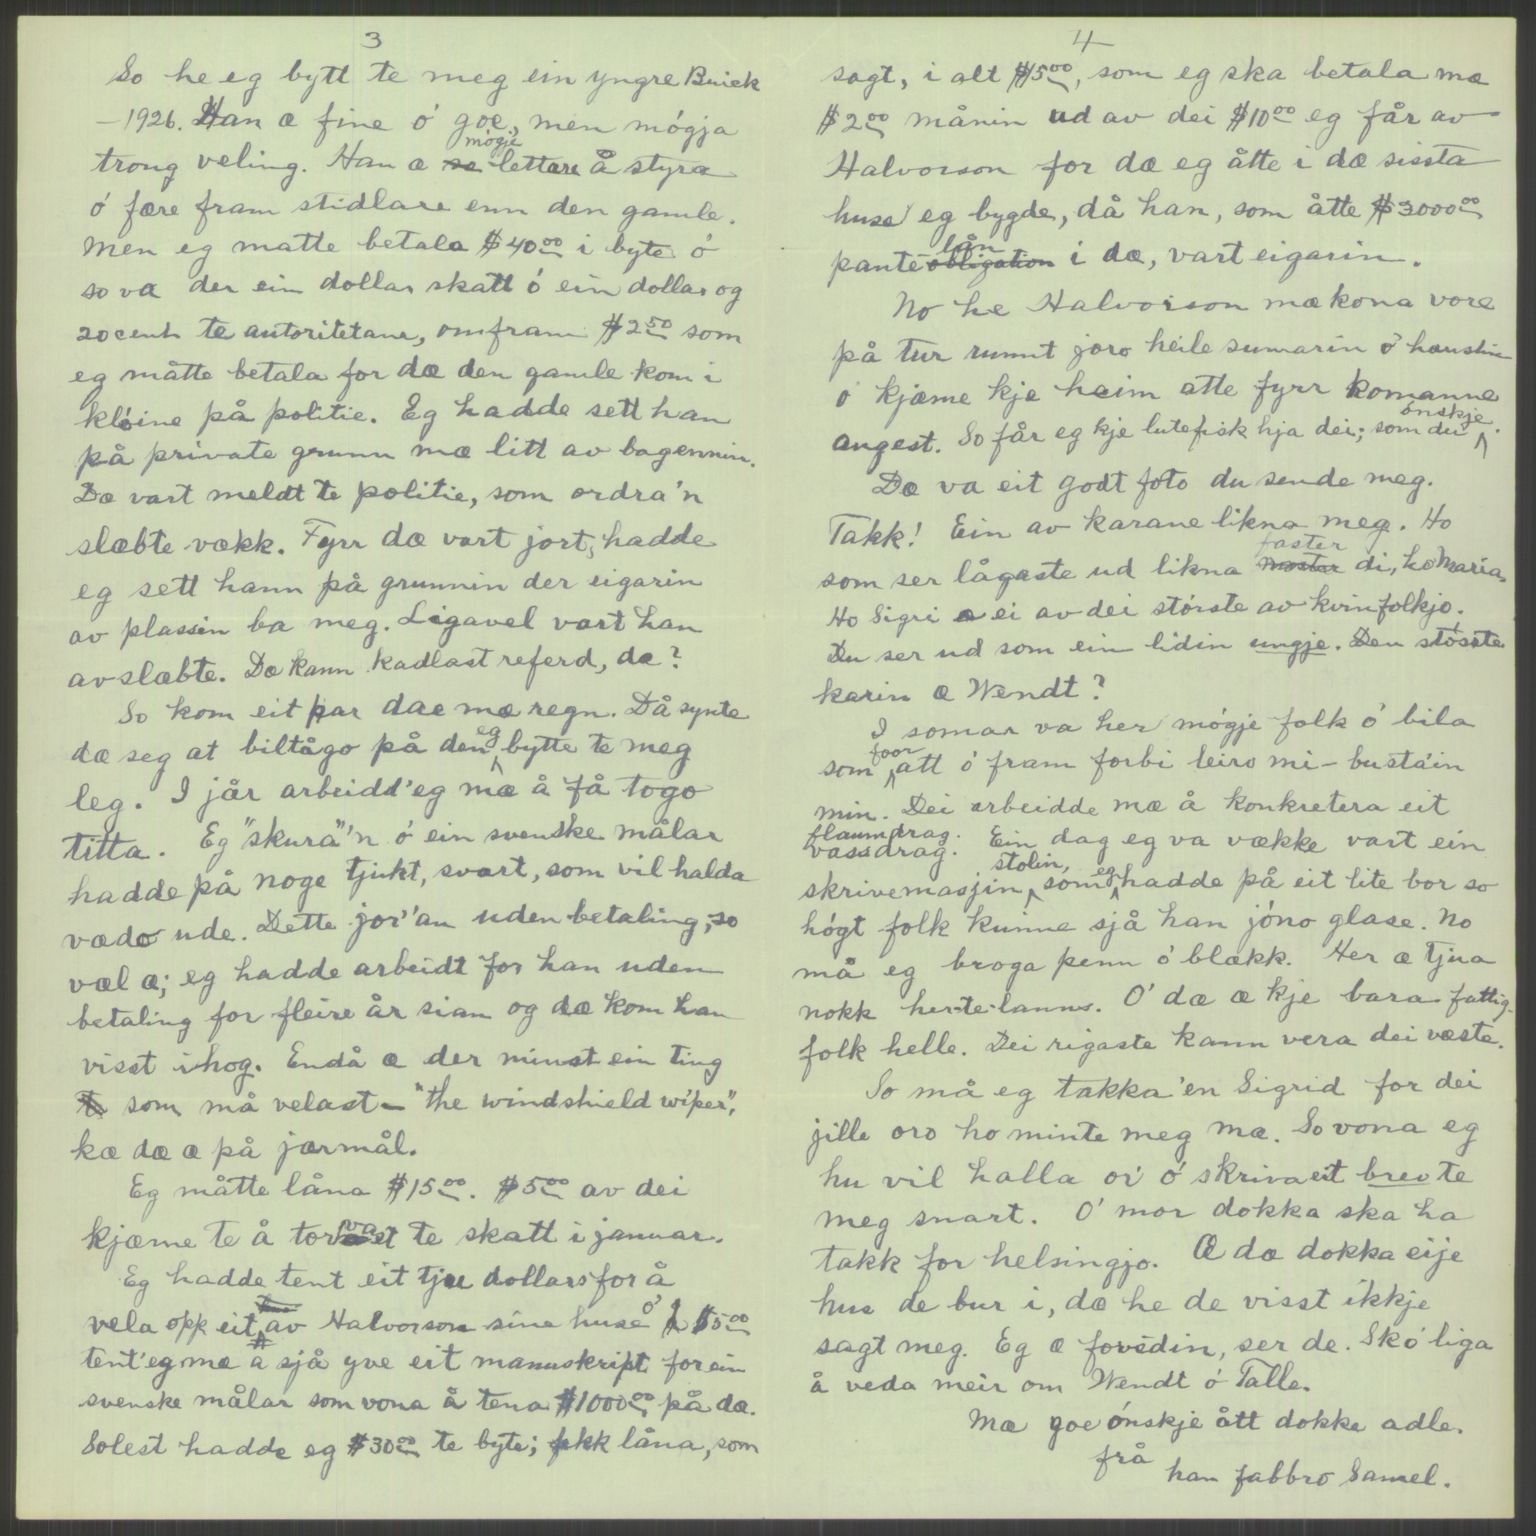 3
So he eg bytt te meg ein yngre Buick
-1926. Han æ fine ó goe, men mógja
trong veling. Han æ mógje lettare å styra
ó føre fram stidlare enn den gamle.
Men eg matte betala $40.00 i byte ó
so va der ein dollar skatt ó ein dollar og
20 cent te autoritetane, omfram $2.50 som
eg måtte betala for dæ den gamle kom i
klóine på politie. Eg hadde sett han
på private grunn mæ litt av bagennin.
Dæ vart meldt te politie, som ordra'n
slæbte vækk. Fyrr dæ vart jort, hadde
eg sett hann på grunnin der eigarin
av plassin ba meg. Ligavel vart han
avslæbte. Dæ kann kadlast referd, dæ?
So kom eit par dae mæ regn. Då synte
dæ seg at biltågo på den eg bytte te meg
leg. I jår arbeidd'eg mæ å få togo
titta. Eg "skura"'n ó ein svenske målar
hadde på noge tjukt, svart, som vil halda
vædo ude. Dette jor'an uden betaling, so
væl æ; eg hadde arbeidt for han uden
betaling for fleire år sian og dæ kom han
visst ihog. Endå æ der minst ein ting
som må velast - "the windshield wiper",
kæ dæ æ på jærmål.
Eg måtte låna $15.00. $5.00 av dei
kjæme te å torvast te skatt i januar.
Eg hadde tent eit tjue dollars for å
vela opp eit av Halvorson sine huse ó $5.00
tent'eg mæ å sjå yve eit manuskript for ein
svenske målar som vona å tena $1000.00 på dæ.
Solest hadde eg $30.00 te byte; fekk låna, som
4
sagt, i alt $15.00, som eg ska betala mæ
$2.00 månin ud av dei $10.00 eg får av
Halvorson for dæ eg åtte i dæ sissta
huse eg bygde, då han, som åtte $3000.00
pantelån i dæ, vart eigarin.
No he Halvorson mæ kona vore
på tur runnt joro heile sumarin ó haustin
ó kjæme kje heim atte fyrr komanne
angest. So får eg kje lutefisk hja dei; som du ónskje.
Dæ va eit godt foto du sende meg.
Takk! Ein av karane likna meg. Ho
som ser lågaste ud likna faster di, ho Maria.
Ho Sigri æ ei av dei stórste av kvinfolkjo.
Du ser ud som ein lidin ungje. Den stósste
karin æ Wendt?
I somar va her mógje folk ó bila
som foor att ó fram forbi leiro mi - bustáin
min. Dei arbeidde mæ å konkretera eit
flaumdrag.
vassdrag. Ein dag eg va vække vart ein
skrivemasjin stolin, som eg hadde på eit lite bor so
hógt folk kunne sjå han jóno glase. No
må eg broga penn ó blækk. Her æ tjua
nokk her-te-lanns. O' dæ æ kje bara fattig-
folk helle. Dei rigaste kann vera dei væste.
So må eg takka 'en Sigrid for dei
jille oro ho minte meg mæ. So vona eg
hu vil halla ov ó skriva eit brev te
meg snart. O' mor dokka ska ha
takk for helsingjo. Æ dæ dokka eije
hus de bur i, dæ he de visst ikkje
sagt meg. Eg æ forvidin, ser de. Skó liga
å veda meir om Wendt ó Talle.
Mæ goe ónskje ått dokke adle.
frå
han fabbro Samel.